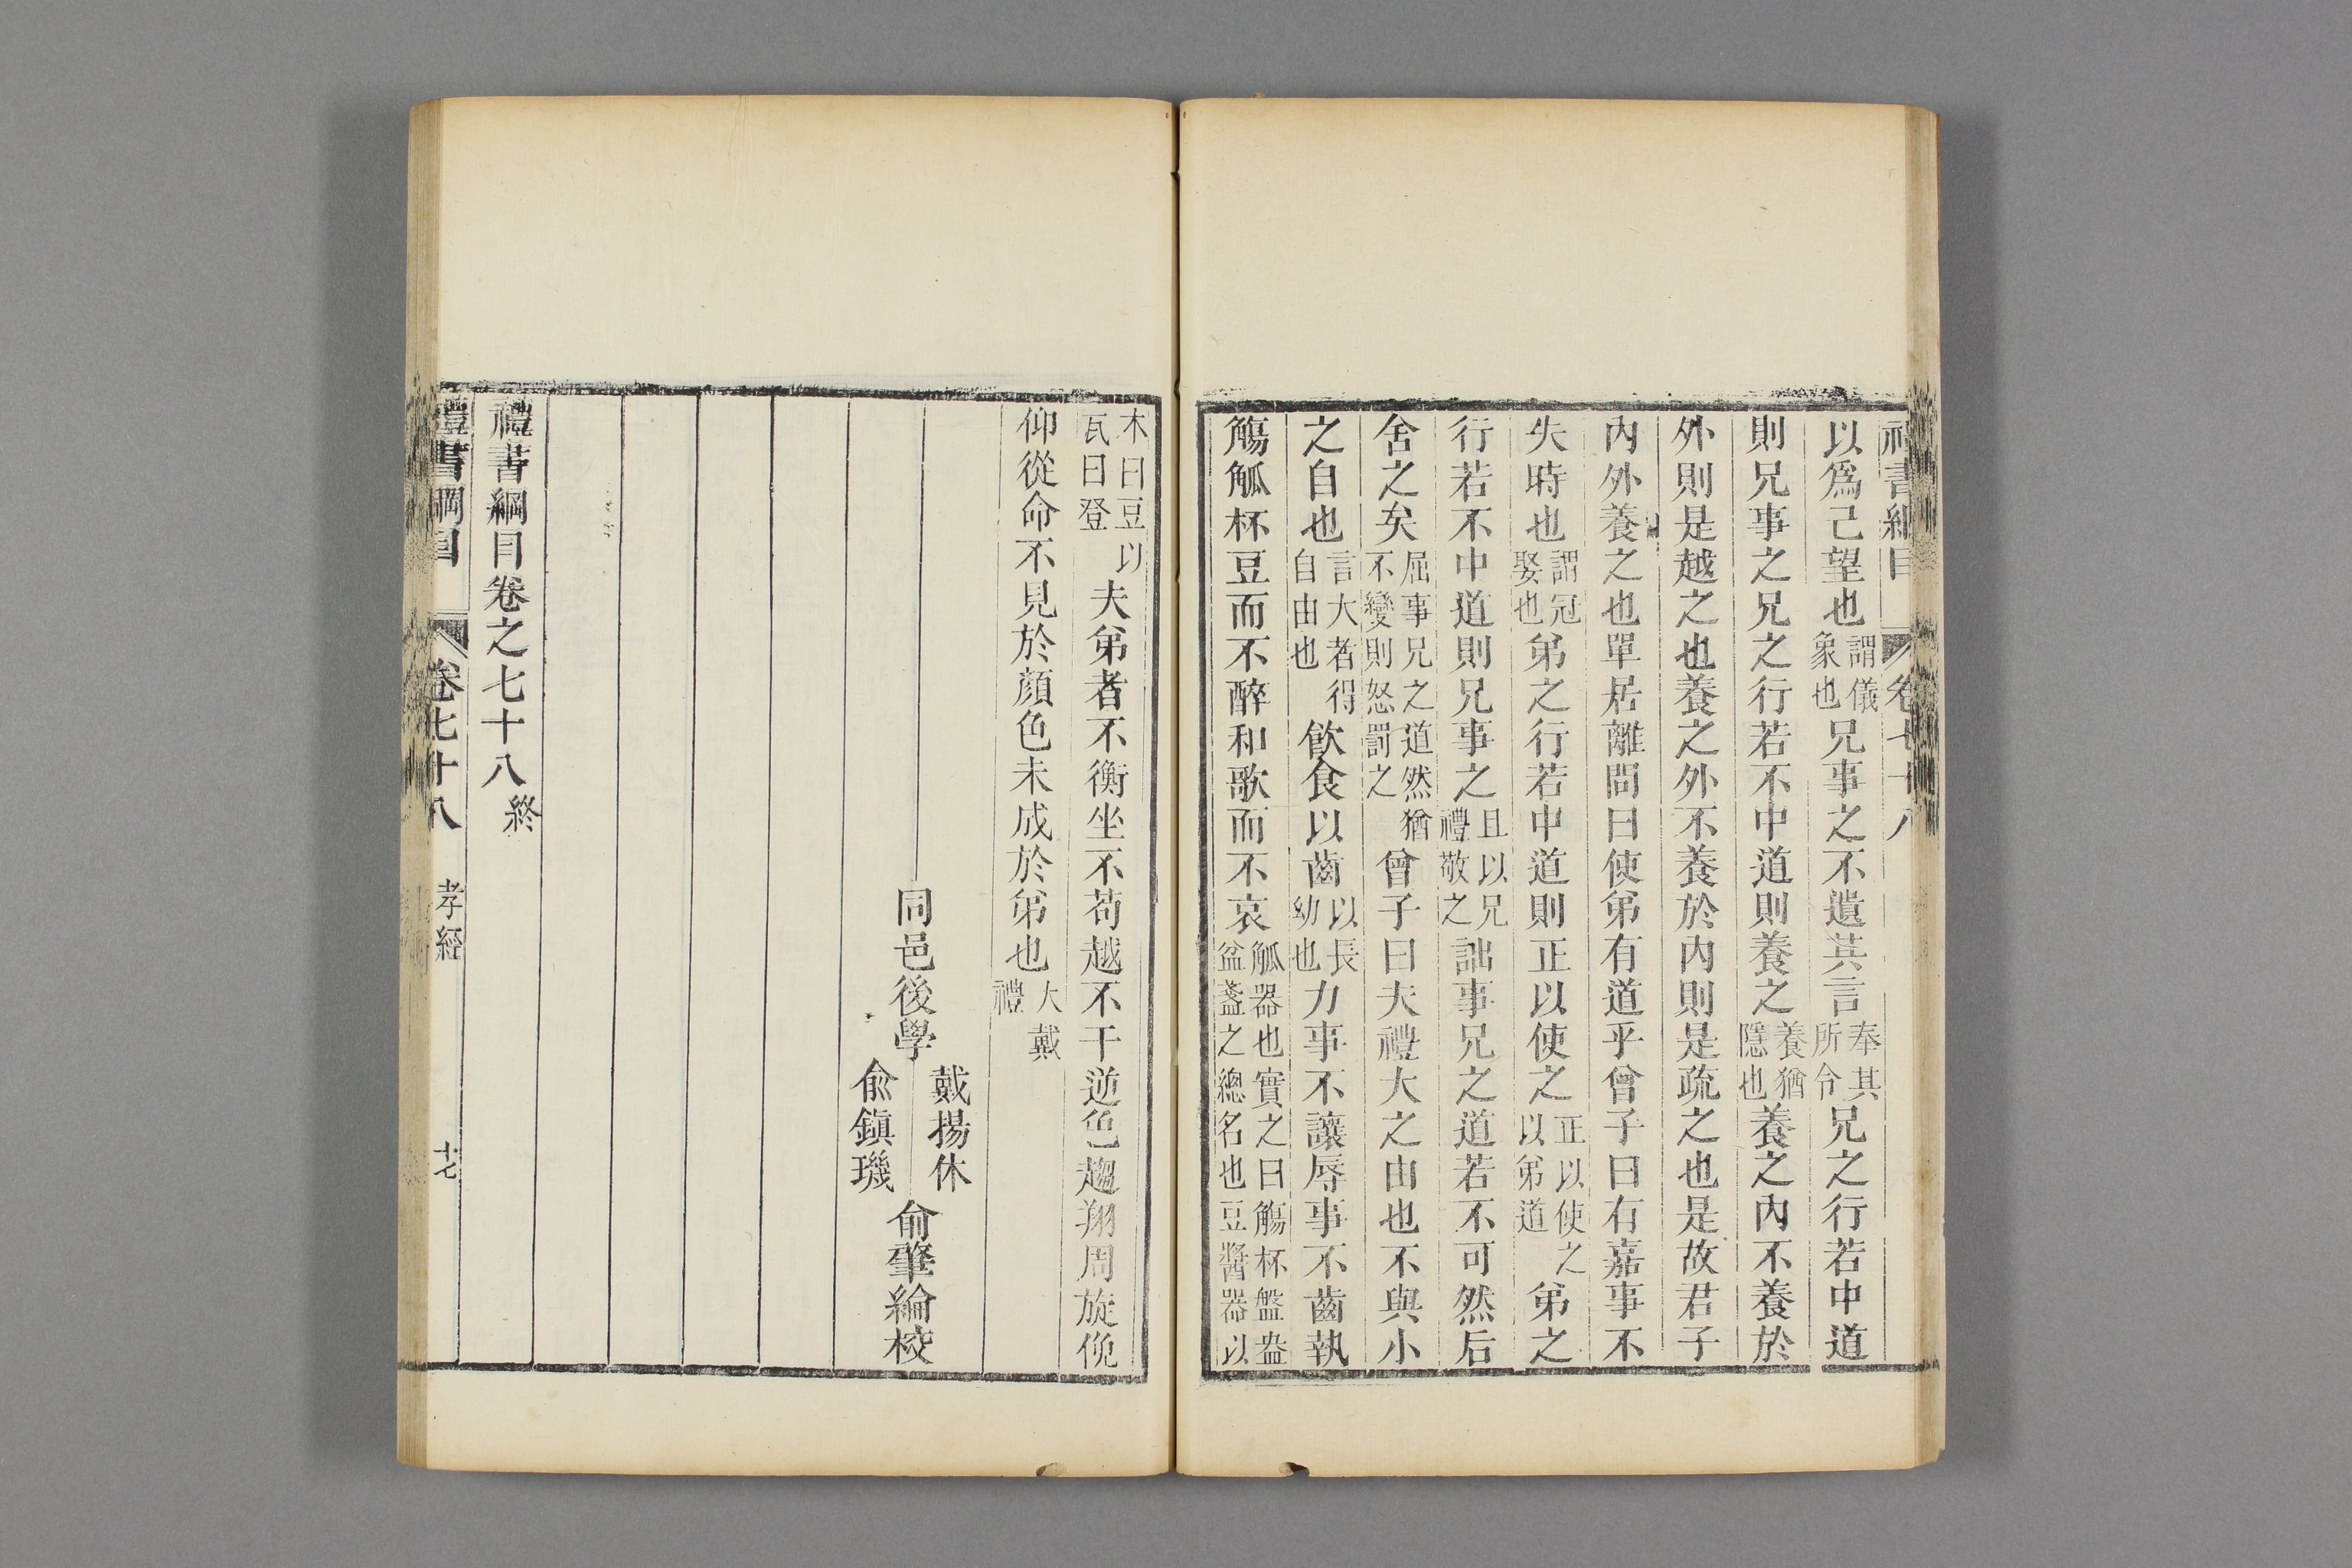 禮書綱目 卷七十八
以爲己望也謂儀象也兄事之不遺其言奉其所令兄之行若中道
則兄事之兄之行若不中道則養之養猶隱也養之內不養於
外則是越之也養之外不養於內則是疏之也是故君子
內外養之也單居離問曰使弟有道乎曾子曰有嘉事不
失時也謂冠娶也弟之行若中道則正以使之正以使之以弟道弟之
行若不中道則兄事之且以兄禮敬之詘事兄之道若不可然后
舍之矣屈事兄之道然猶不變則怒罰之曾子曰夫禮大之由也不與小
之自也言大者得自由也飮食以齒以長幼也力事不讓辱事不齒執
觴觚杯豆而不醉和歌而不哀觚器也實之曰觴杯盤盎盆盞之總名也豆醬器以
木曰豆以瓦曰登夫弟者不衡坐不苟越不干逆色趨翔周旋俛
仰從命不見於顏色未成於弟也大戴禮
同邑後學 戴揚休 兪鎭璣 俞肇綸校
禮書綱目卷之七十八終
禮書綱目 卷七十八 孝經 十七